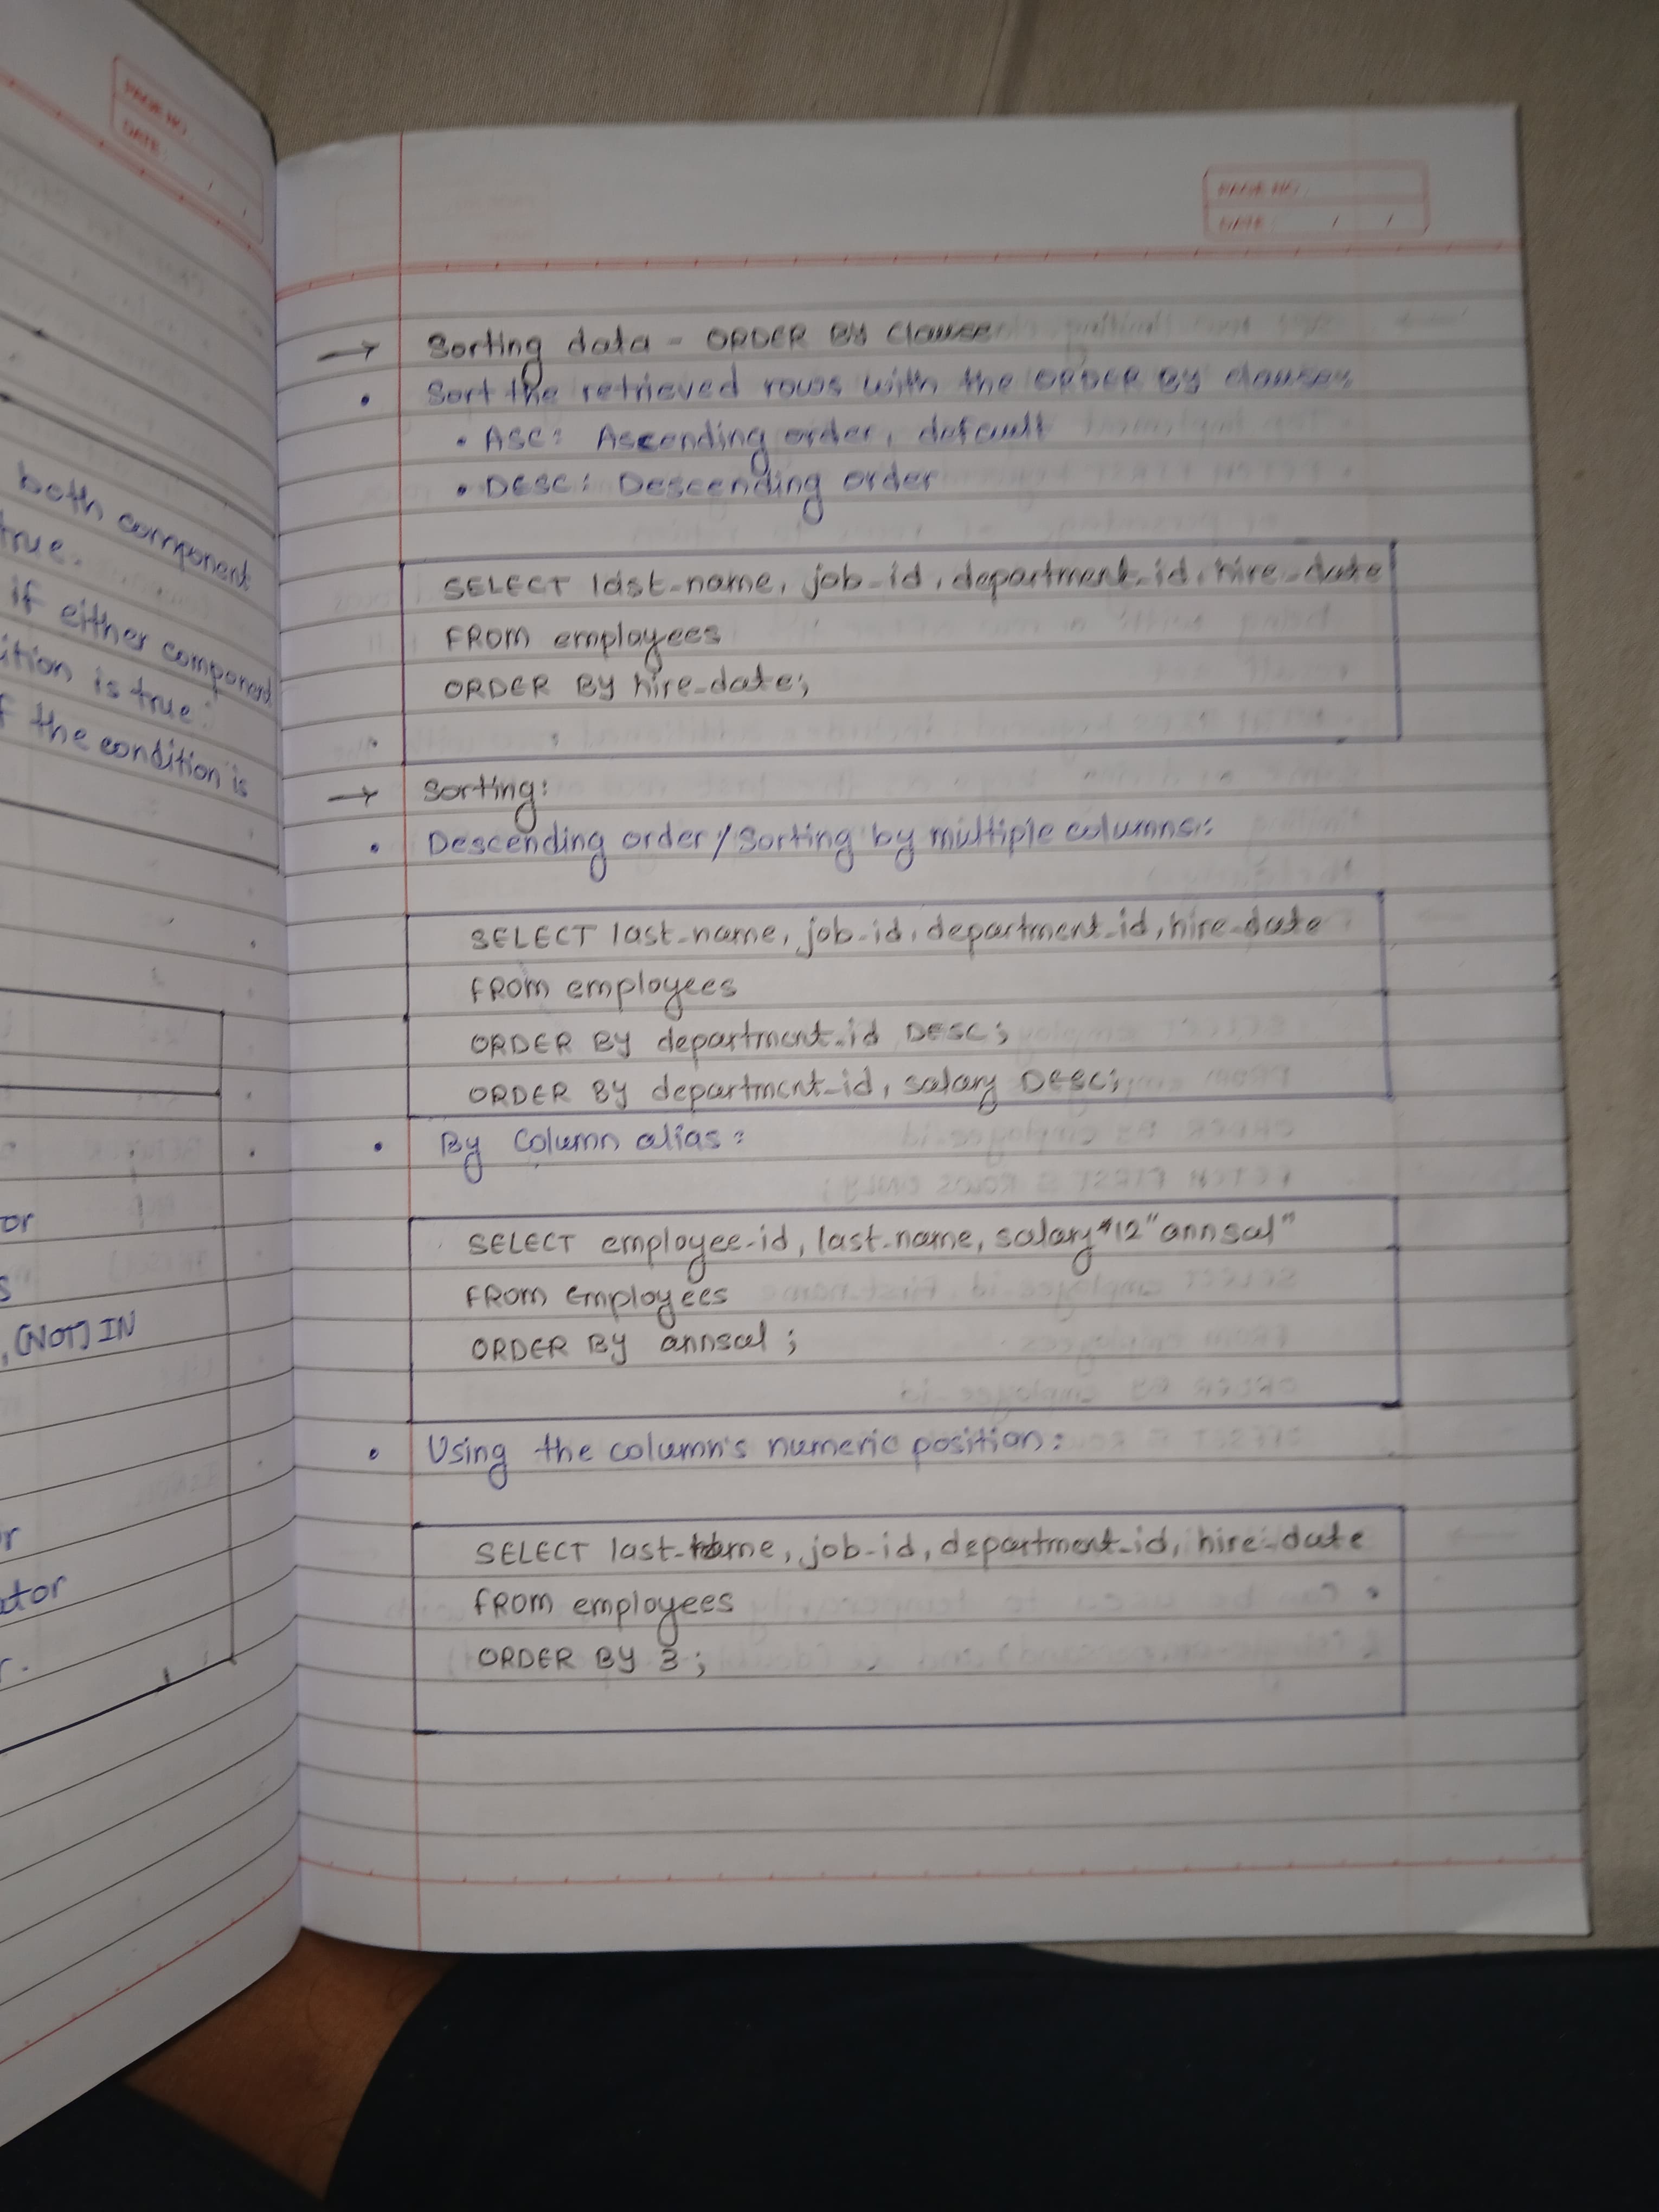 PAGE NO
DATE
both component
true.
if either component
ition is true.
f the condition is
or
s
, (NOT) IN
r
ator
r.
PAGE NO.
DATE / /
→ Sorting data - ORDER BY clause
• Sort the retrieved rows with the ORDER BY clause:
• ASC: Ascending order, default
• DESC: Descending order
SELECT last_name, job_id, department_id, hire_date
FROM employees
ORDER BY hire_date;
→ Sorting:
• Descending order/Sorting by multiple columns:
SELECT last_name, job_id, department_id, hire_date
FROM employees
ORDER BY department_id DESC;
ORDER BY department_id, salary DESC;
• By Column alias:
SELECT employee_id, last_name, salary*12 "annsal"
FROM employees
ORDER BY annsal ;
• Using the column's numeric position:
SELECT last_name, job_id, department_id, hire_date
FROM employees
ORDER BY 3 ;